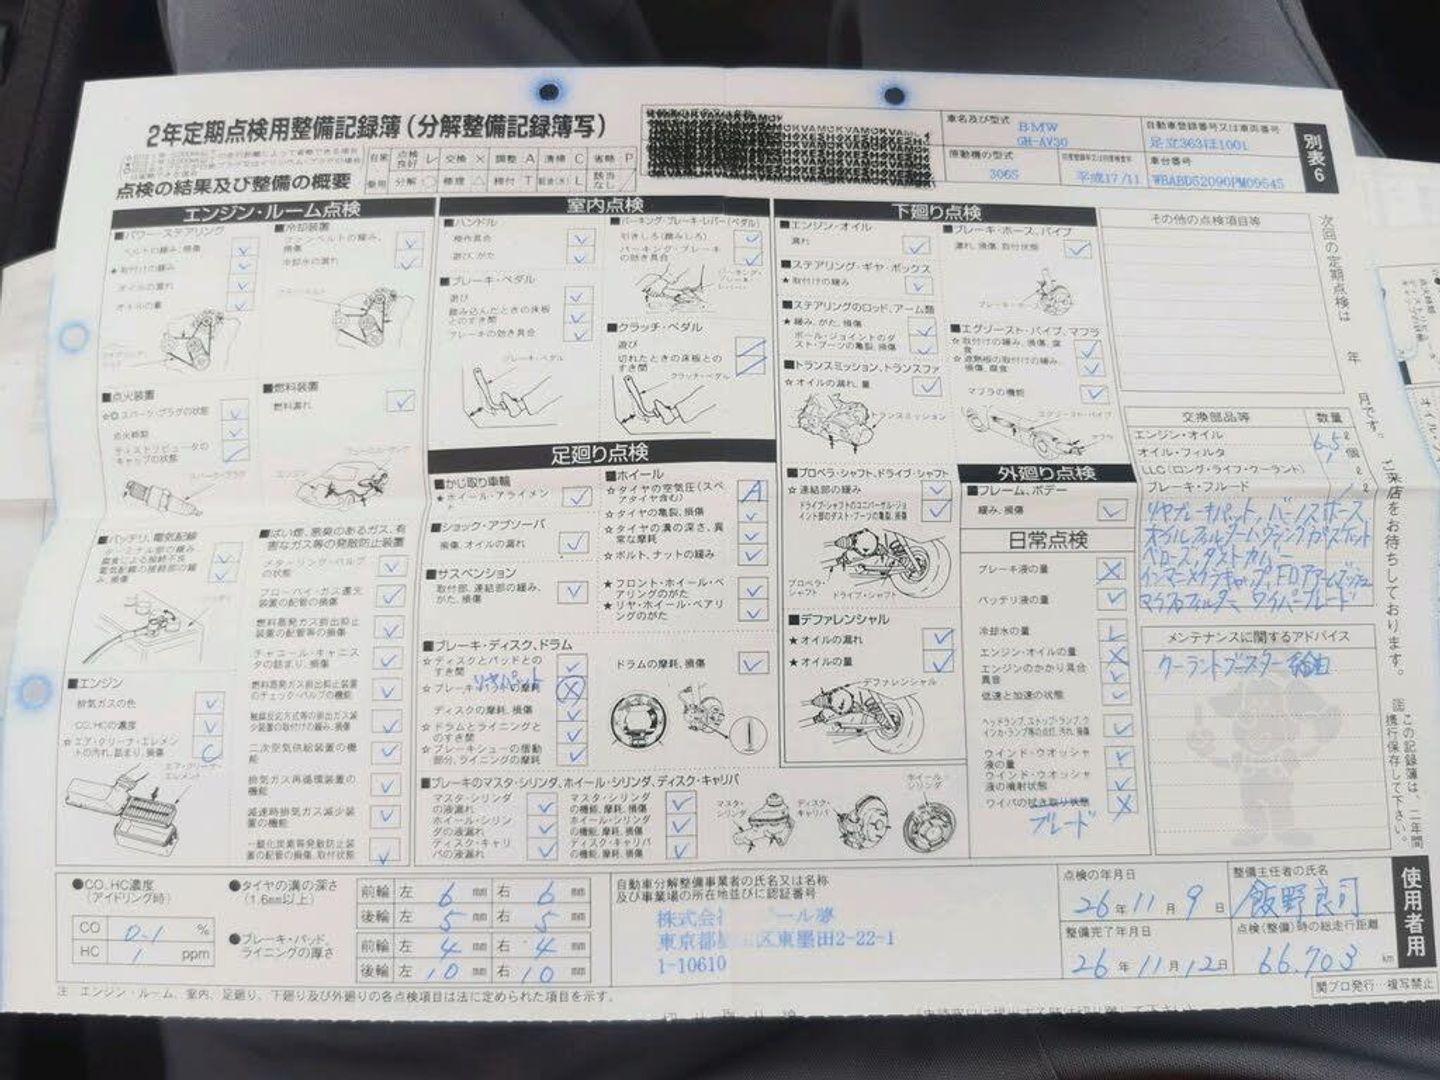 2年定期点検用整備記録簿(分解整備記録簿写)
点検の結果及び整備の概要
点検良好 レ 交換 × 調整 A 清掃 C 省略 P
分解 ○ 修理 △ 締付 T 給油(水) L 該当なし /
車名及び型式
BMW
GH-AV30
自動車登録番号又は車両番号
足立363ほ1001
原動機の型式
306S
平成17/11
車台番号
WBABD52090PM09545
別表6
エンジン・ルーム点検
■パワー・ステアリング
ベルトの緩み、損傷
★取付けの緩み
オイルの漏れ
オイルの量
■冷却装置
ファンベルトの緩み、損傷
冷却水の漏れ
■点火装置
☆スパーク・プラグの状態
点火時期
ディストリビュータのキャップの状態
スパーク・プラグ
■燃料装置
燃料漏れ
エンジン
■バッテリ、電気配線
ターミナル部の緩み、腐食による接続不良
電気配線の接続部の緩み、損傷
■ばい煙、悪臭のあるガス、有害なガス等の発散防止装置
メターリング・バルブの状態
ブローバイ・ガス還元装置の配管の損傷
燃料蒸発ガス排出抑止装置の配管等の損傷
チャコール・キャニスタの詰まり、損傷
燃料蒸発ガス排出抑止装置のチェック・バルブの機能
触媒反応方式等の排出ガス減少装置の取付けの緩み、損傷
二次空気供給装置の機能
排気ガス再循環装置の機能
減速時排気ガス減少装置の機能
一酸化炭素等発散防止装置の配管の損傷、取付状態
■エンジン
排気ガスの色
CO、HCの濃度
☆エア・クリーナ・エレメントの汚れ、詰まり、損傷 C
エア・クリーナ・エレメント
室内点検
■ハンドル
操作具合
遊び、がた
■ブレーキ・ペダル
遊び
踏み込んだときの床板とのすき間
ブレーキの効き具合
ブレーキ・ペダル
■パーキング・ブレーキ・レバー(ペダル)
引きしろ(踏みしろ)
パーキング・ブレーキの効き具合
パーキング・ブレーキ・レバー
■クラッチ・ペダル
遊び
切れたときの床板とのすき間
クラッチ・ペダル
足廻り点検
■かじ取り車輪
★ホイール・アライメント
■ショック・アブソーバ
損傷、オイルの漏れ
■サスペンション
取付部、連結部の緩み、がた、損傷
■ホイール
☆タイヤの空気圧(スペアタイヤ含む) A
☆タイヤの亀裂、損傷
☆タイヤの溝の深さ、異常な摩耗
☆ボルト、ナットの緩み
★フロント・ホイール・ベアリングのがた
★リヤ・ホイール・ベアリングのがた
■ブレーキ・ディスク、ドラム
☆ディスクとパッドとのすき間
リヤパット
☆ブレーキ・パッドの摩耗
ディスクの摩耗、損傷
☆ドラムとライニングとのすき間
☆ブレーキシューの摺動部分、ライニングの摩耗
ドラムの摩耗、損傷
■ブレーキのマスタ・シリンダ、ホイール・シリンダ、ディスク・キャリパ
マスタ・シリンダの液漏れ
ホイール・シリンダの液漏れ
ディスク・キャリパの液漏れ
マスタ・シリンダの機能、摩耗、損傷
ホイール・シリンダの機能、摩耗、損傷
ディスク・キャリパの機能、摩耗、損傷
マスタ・シリンダ
ディスク・キャリパ
ホイール・シリンダ
下廻り点検
■エンジン・オイル
漏れ
■ステアリング・ギヤ・ボックス
★取付けの緩み
■ステアリングのロッド、アーム類
★緩み、がた、損傷
ボール・ジョイントのダスト・ブーツの亀裂、損傷
■トランスミッション、トランスファ
☆オイルの漏れ、量
トランスミッション
■プロペラ・シャフト、ドライブ・シャフト
☆連結部の緩み
ドライブ・シャフトのユニバーサル・ジョイント部のダスト・ブーツの亀裂、損傷
プロペラ・シャフト
ドライブ・シャフト
■デファレンシャル
★オイルの漏れ
★オイルの量
デファレンシャル
■ブレーキ・ホース、パイプ
漏れ、損傷、取付状態
■エグゾースト・パイプ、マフラ
☆取付けの緩み、損傷、腐食
☆遮熱板の取付けの緩み、損傷、腐食
マフラの機能
エグゾースト・パイプ
マフラ
外廻り点検
■フレーム、ボデー
緩み、損傷
日常点検
ブレーキ液の量
バッテリ液の量
冷却水の量
エンジン・オイルの量
エンジンのかかり具合、異音
低速と加速の状態
ヘッドランプ、ストップ・ランプ、ウインカ・ランプ等の点灯、汚れ、損傷
ウインド・ウオッシャ液の量
ウインド・ウオッシャ液の噴射状態
ワイパの拭き取り状態
ブレード
その他の点検項目等
交換部品等 数量
エンジン・オイル 6.5 ℓ
オイル・フィルタ 1 個
LLC(ロング・ライフ・クーラント) ℓ
ブレーキ・フルード 1 ℓ
リヤブレーキパット、バキュームホース
オイルフィルターハウジングガスケット
ベローズ、ダストカバー
マイクロフィルター ワイパーブレード
メンテナンスに関するアドバイス
クーラントブースター給油
次回の定期点検は 年 月です。ご来店をお待ちしております。
注 この記録簿は、二年間携行保存して下さい。
●CO、HC濃度(アイドリング時)
CO 0.1 %
HC 1 ppm
●タイヤの溝の深さ(1.6mm以上)
前輪 左 6 mm 右 6 mm
後輪 左 5 mm 右 5 mm
●ブレーキ・パッド、ライニングの厚さ
前輪 左 4 mm 右 4 mm
後輪 左 10 mm 右 10 mm
自動車分解整備事業者の氏名又は名称及び事業場の所在地並びに認証番号
株式会 ール夢
東京都墨 区東墨田2-22-1
1-10610
点検の年月日
26年11月9日
整備完了年月日
26年11月12日
整備主任者の氏名
飯野良司
点検(整備)時の総走行距離
66,703 km
使用者用
注 エンジン・ルーム、室内、足廻り、下廻り及び外廻りの各点検項目は法に定められた項目を示す。
関プロ発行・複写禁止